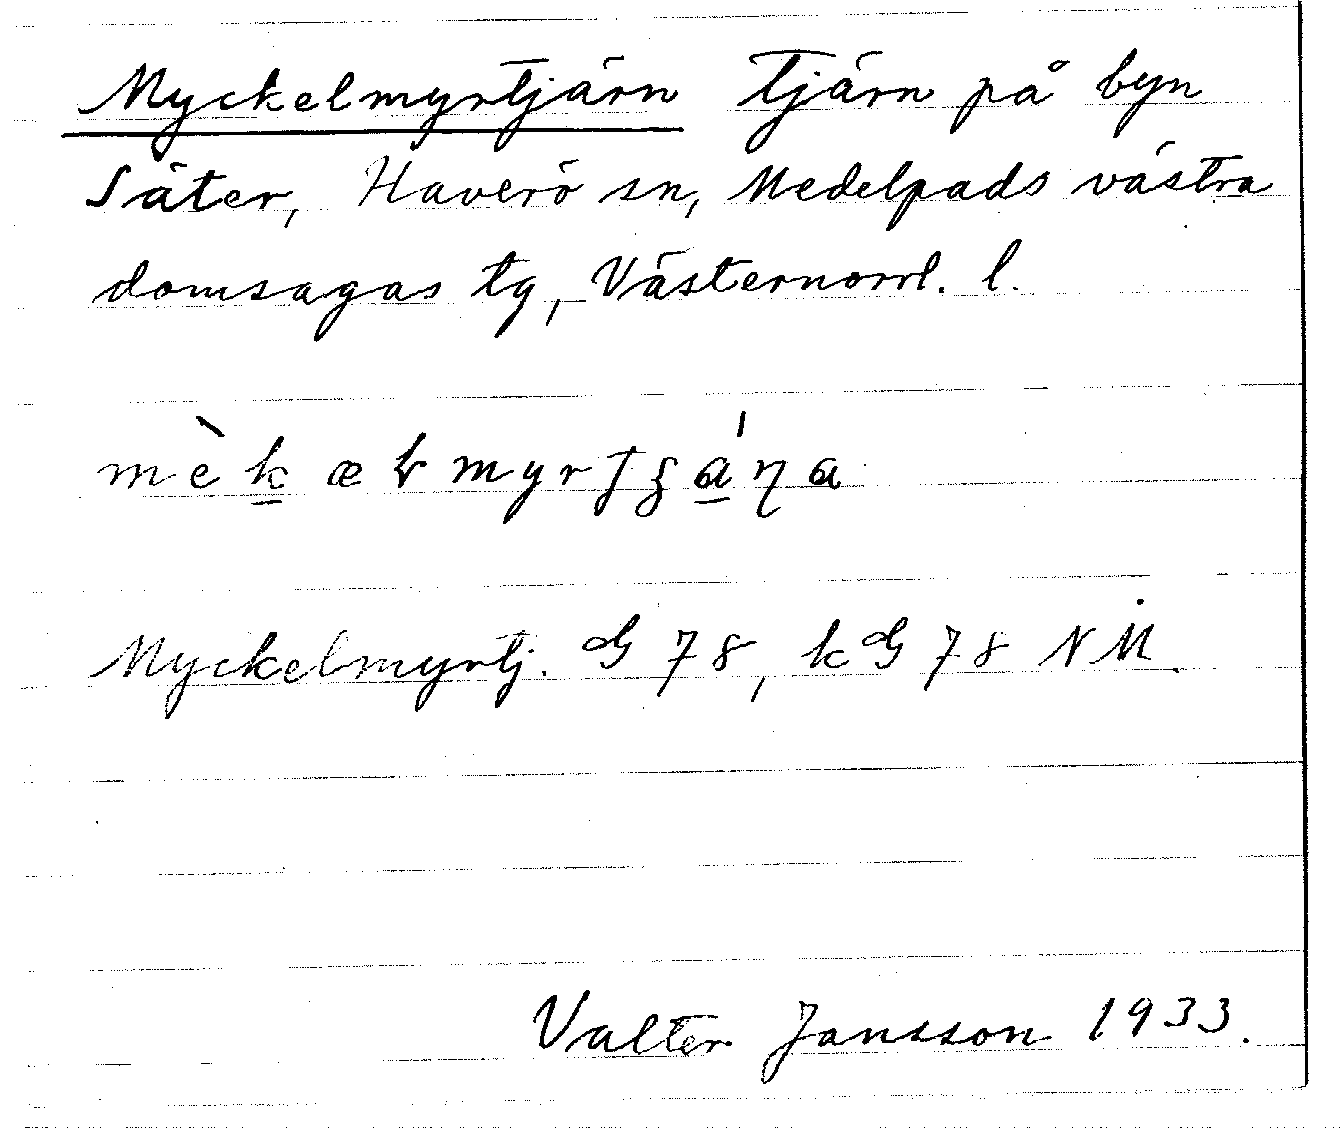 Myckelmyrtjärn Tjärn på byn
Säter, Haverö sn, Medelpads västra
domsagas tg, Västernorrl. l.
mèkæƚmyrʃʒáṇa
Myckelmyrtj. G 78, kG 78 NM.
Valter Jansson 1933.